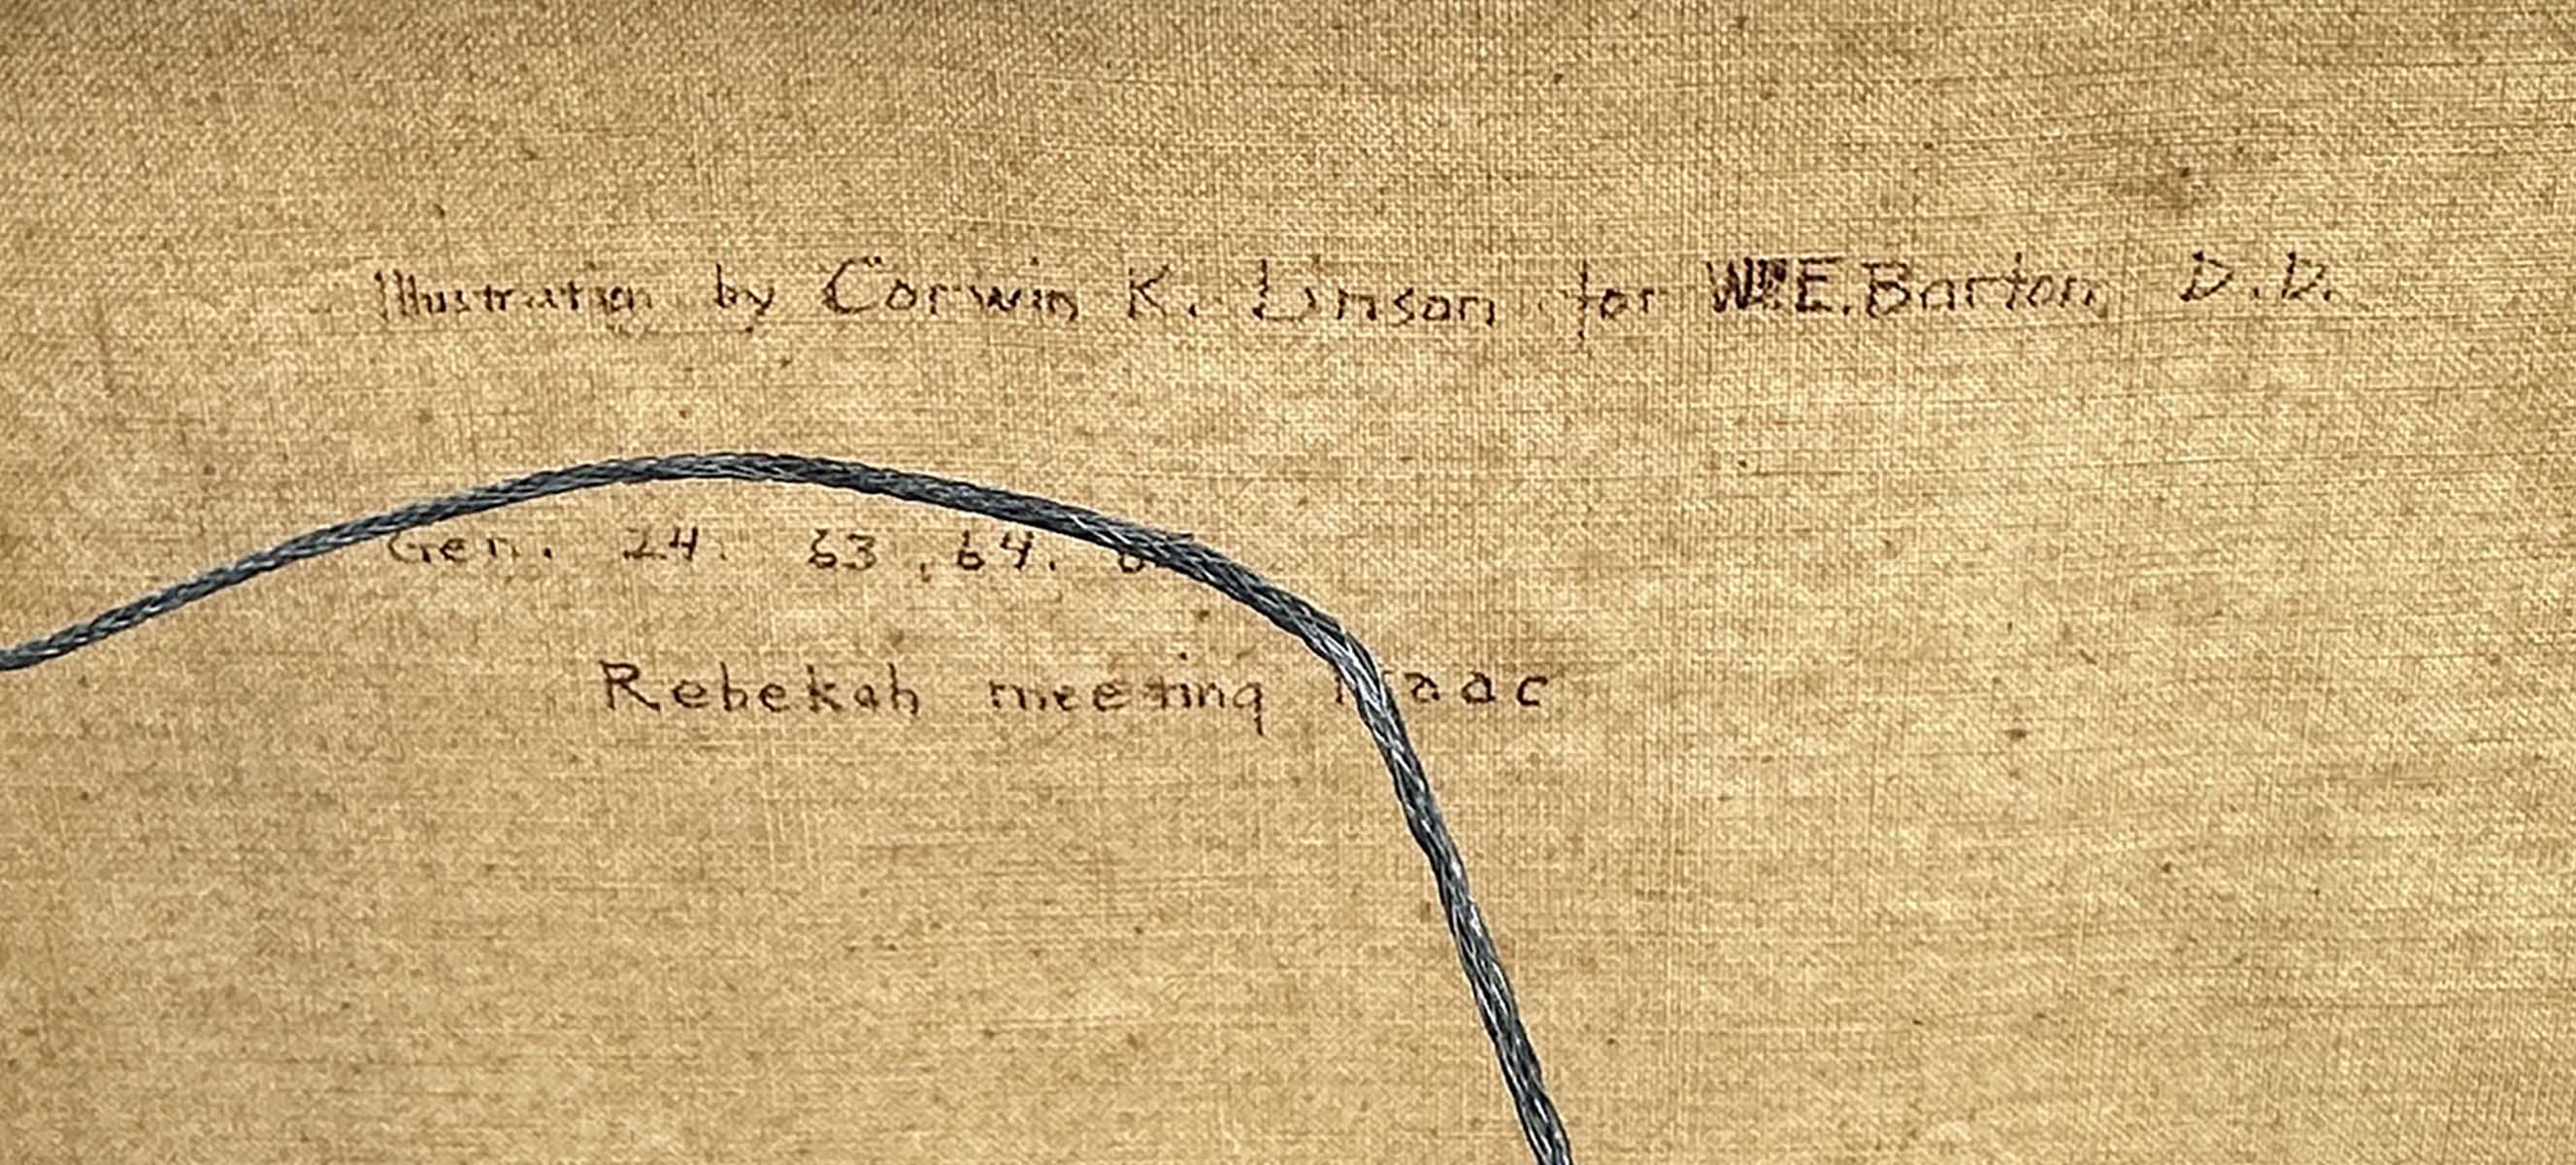 Illustration by Corwin K. Linson for Wm E. Barton, D.D.
Gen. 24. 63, 64.
Rebekah meeting Isaac